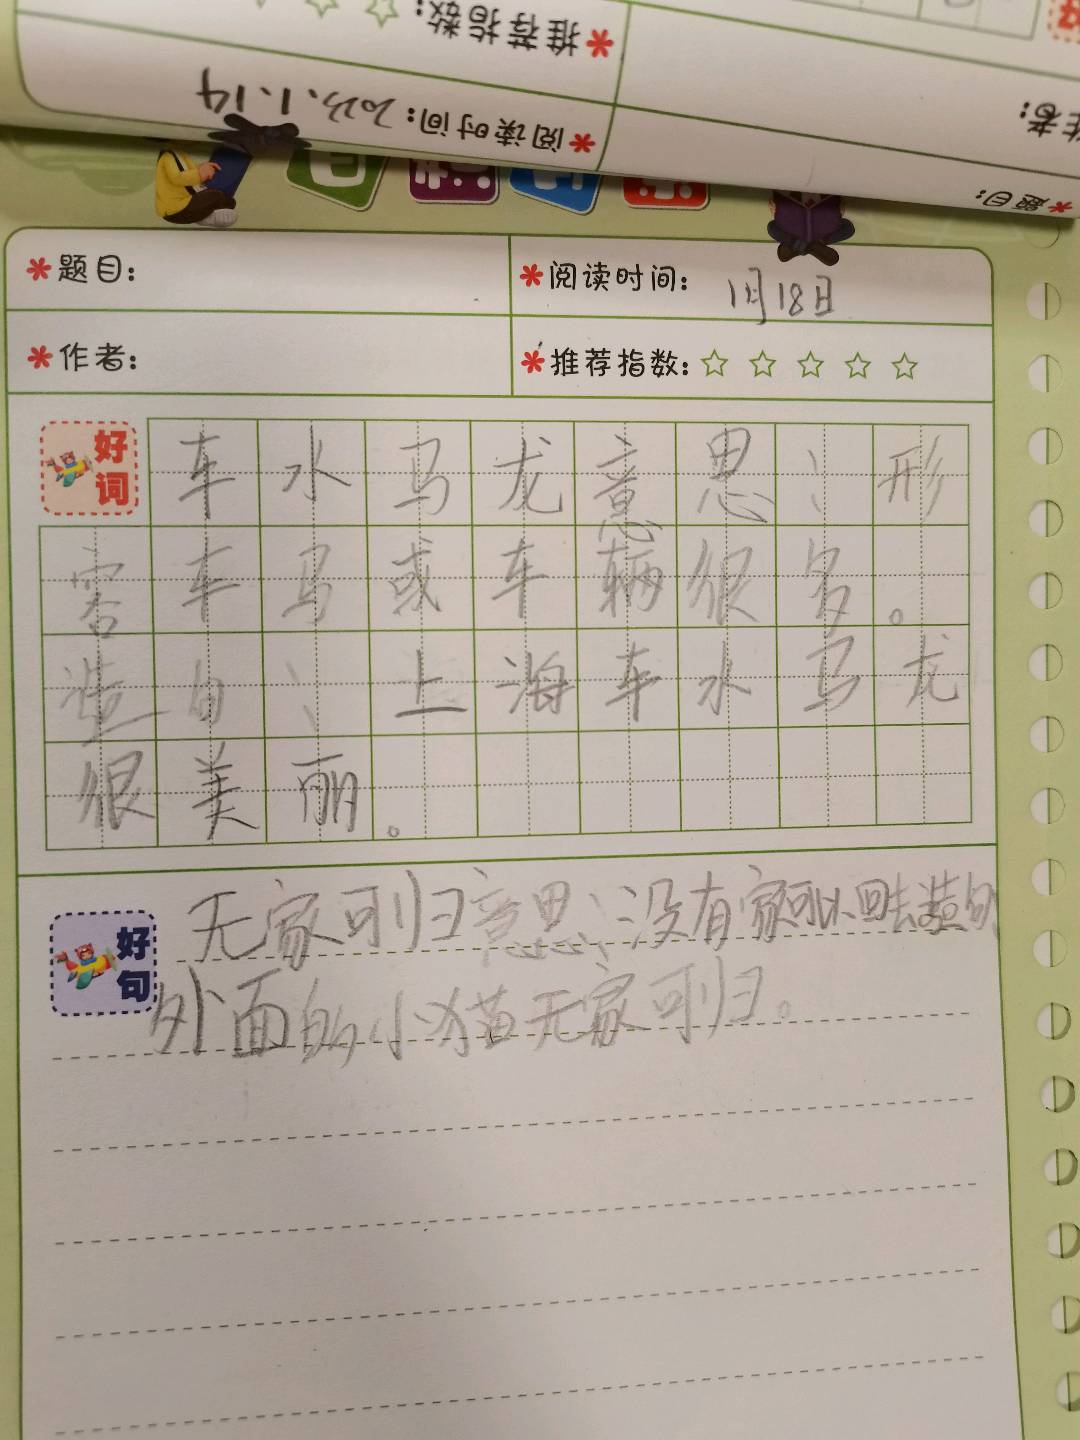 推荐指数：
阅读时间：2023.1.14
作者：
题目：
题目：
阅读时间：1月18日
作者：
推荐指数：
好词
车水马龙意思：形
容车马或车辆很多。
造句：上海车水马龙
很美丽。
好句
无家可归意思：没有家可以回去造句
外面的小猫无家可归。